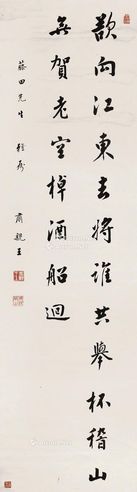 欲向江東去將誰共舉杯稽山
無賀老空棹酒船迴
藤田先生雅屬
肅親王